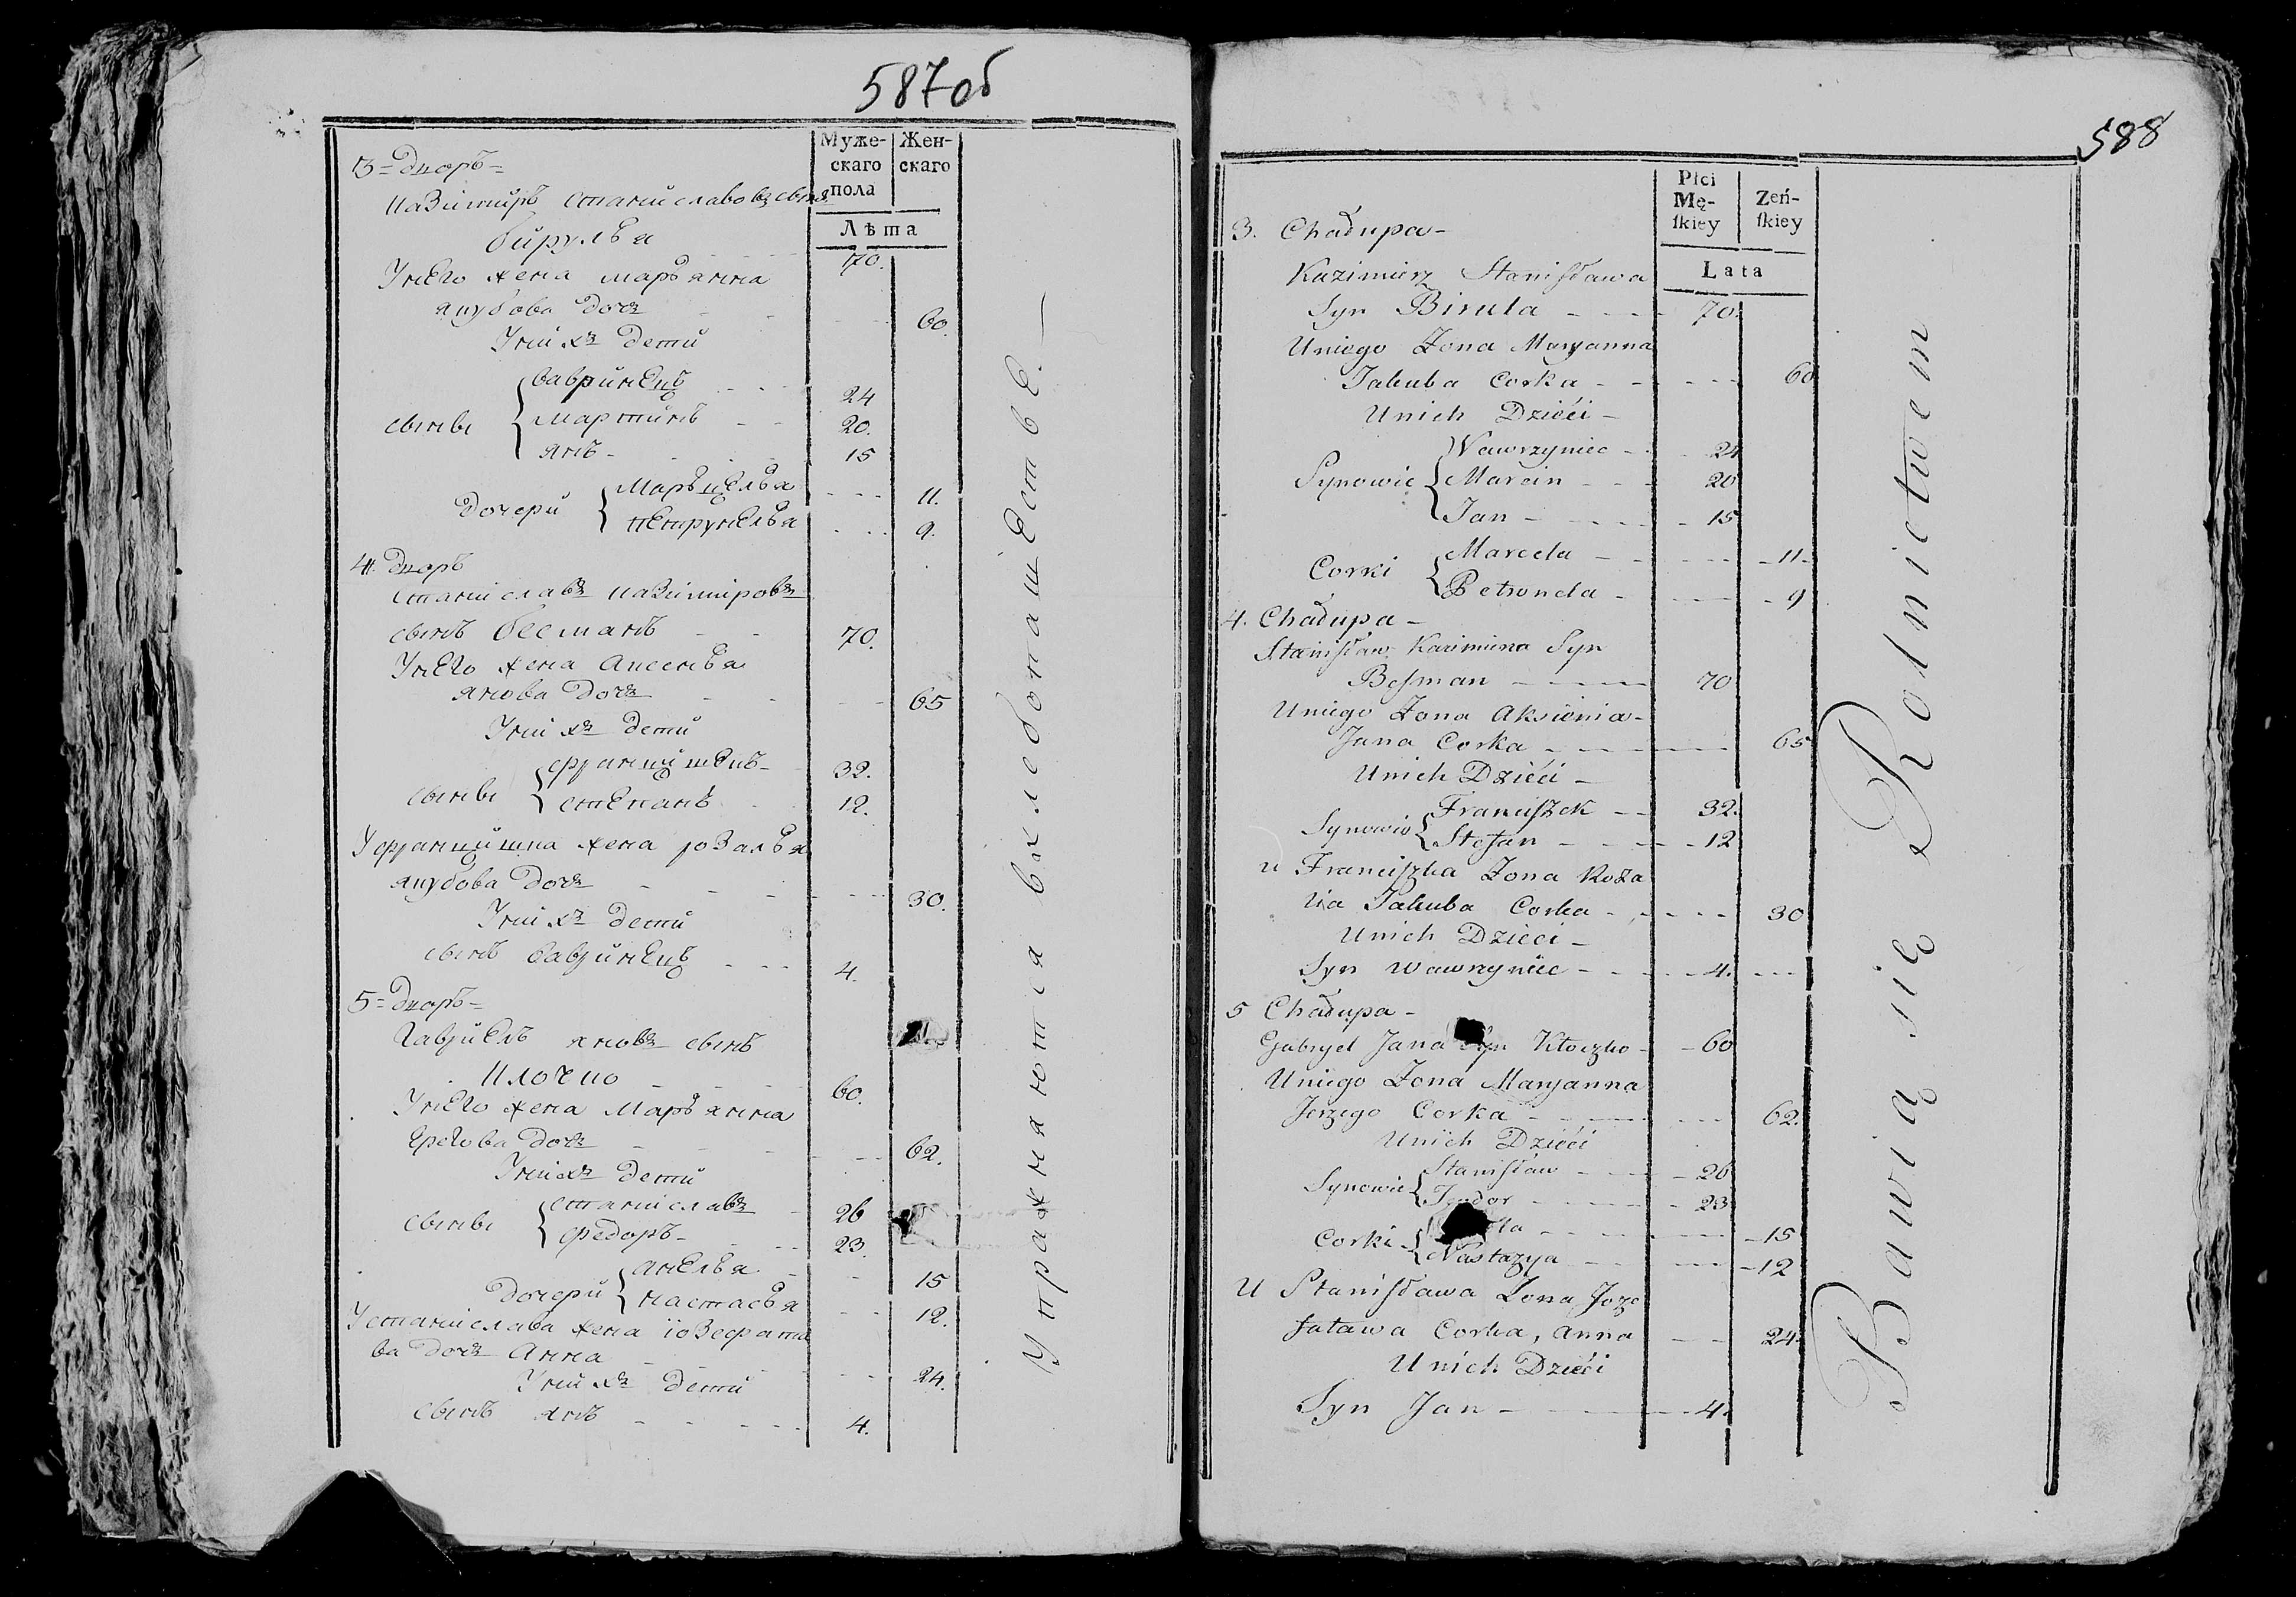 587об
Муже-
скаго
пола
Жен-
скаго
Лѣта
3 = Дворъ =
Казимиръ Станиславовъ сынъ
бируля 70.
У него жена Марьянна
якубова дочь - - - 60.
У них дети
сыны { Вавринецъ - - 24
Мартинъ - - 20.
янъ - - - 15
Дочери { Марцеля - - - 11.
Петрунеля - - - 9.
4. Дворъ
Станиславъ Казимировъ
сынъ бесманъ - - 70.
У него жена Аксеня
янова дочь - - - 65
У них дети
сыны { францишекъ - 32.
Степанъ - - 12.
У францишка жена розаля
якубова дочь - - - 30.
У них дети
сынъ Вавринецъ - - - 4.
5 = Дворъ =
Гавриелъ яновъ сынъ
Клочко - - - 60.
У него жена Марьянна
Ерегова дочь - - - 62.
У них дети
сыны { Станиславъ - 26
Федоръ - - - 23.
Дочери { анеля - - - 15
настася - - 12.
У станислава жена іозефата
ва дочь Анна - - - 24.
У них дети
сынъ янъ - - - - 4.
Упражняются в хлебопашестве. —
588
Płci
Mę-
ſkiey
Zeń-
ſkiey
Lata
3. Chałupa -
Kazimierz Staniſława
Syn Birula - - - 70.
Uniego Zona Maryanna
Jakuba Corka - - - - 60
Unich Dzieći -
Synowie { Wawrzyniec - - - 24
Marcin - - - 20
Jan - - - - 15
Corki { Marcela - - - - 11 -
Petronela - - - - 9
4. Chałupa -
Staniſław Kazimierza Syn
Beſman - - - - 70
Uniego Zona Aksienia -
Jana Corka - - - - 65
Unich Dzieći -
Synowie { Franciſzek - - 32.
Stefan - - - - 12
u Franciſzka Zona Roza
lia Jakuba Corka - - - - 30
Unich Dzieci -
Syn Wawrzyniec - - - - 4. - - -
5 Chałupa -
Gabryel Jana Syn Kłoczko - - 60
Uniego Zona Maryanna
Jerzego Corka - - - - 62.
Unich Dzieći
Synowie { Staniſław - - - - 26
Teodor - - - - 23
Corki { - - - - 15
Nastazya - - - - 12
U Staniſława Zona Joze
fatawa Corka, Anna - - 24.
Unich Dzieći
Syn Jan - - - - 4.
Bawią się Rolnictwem